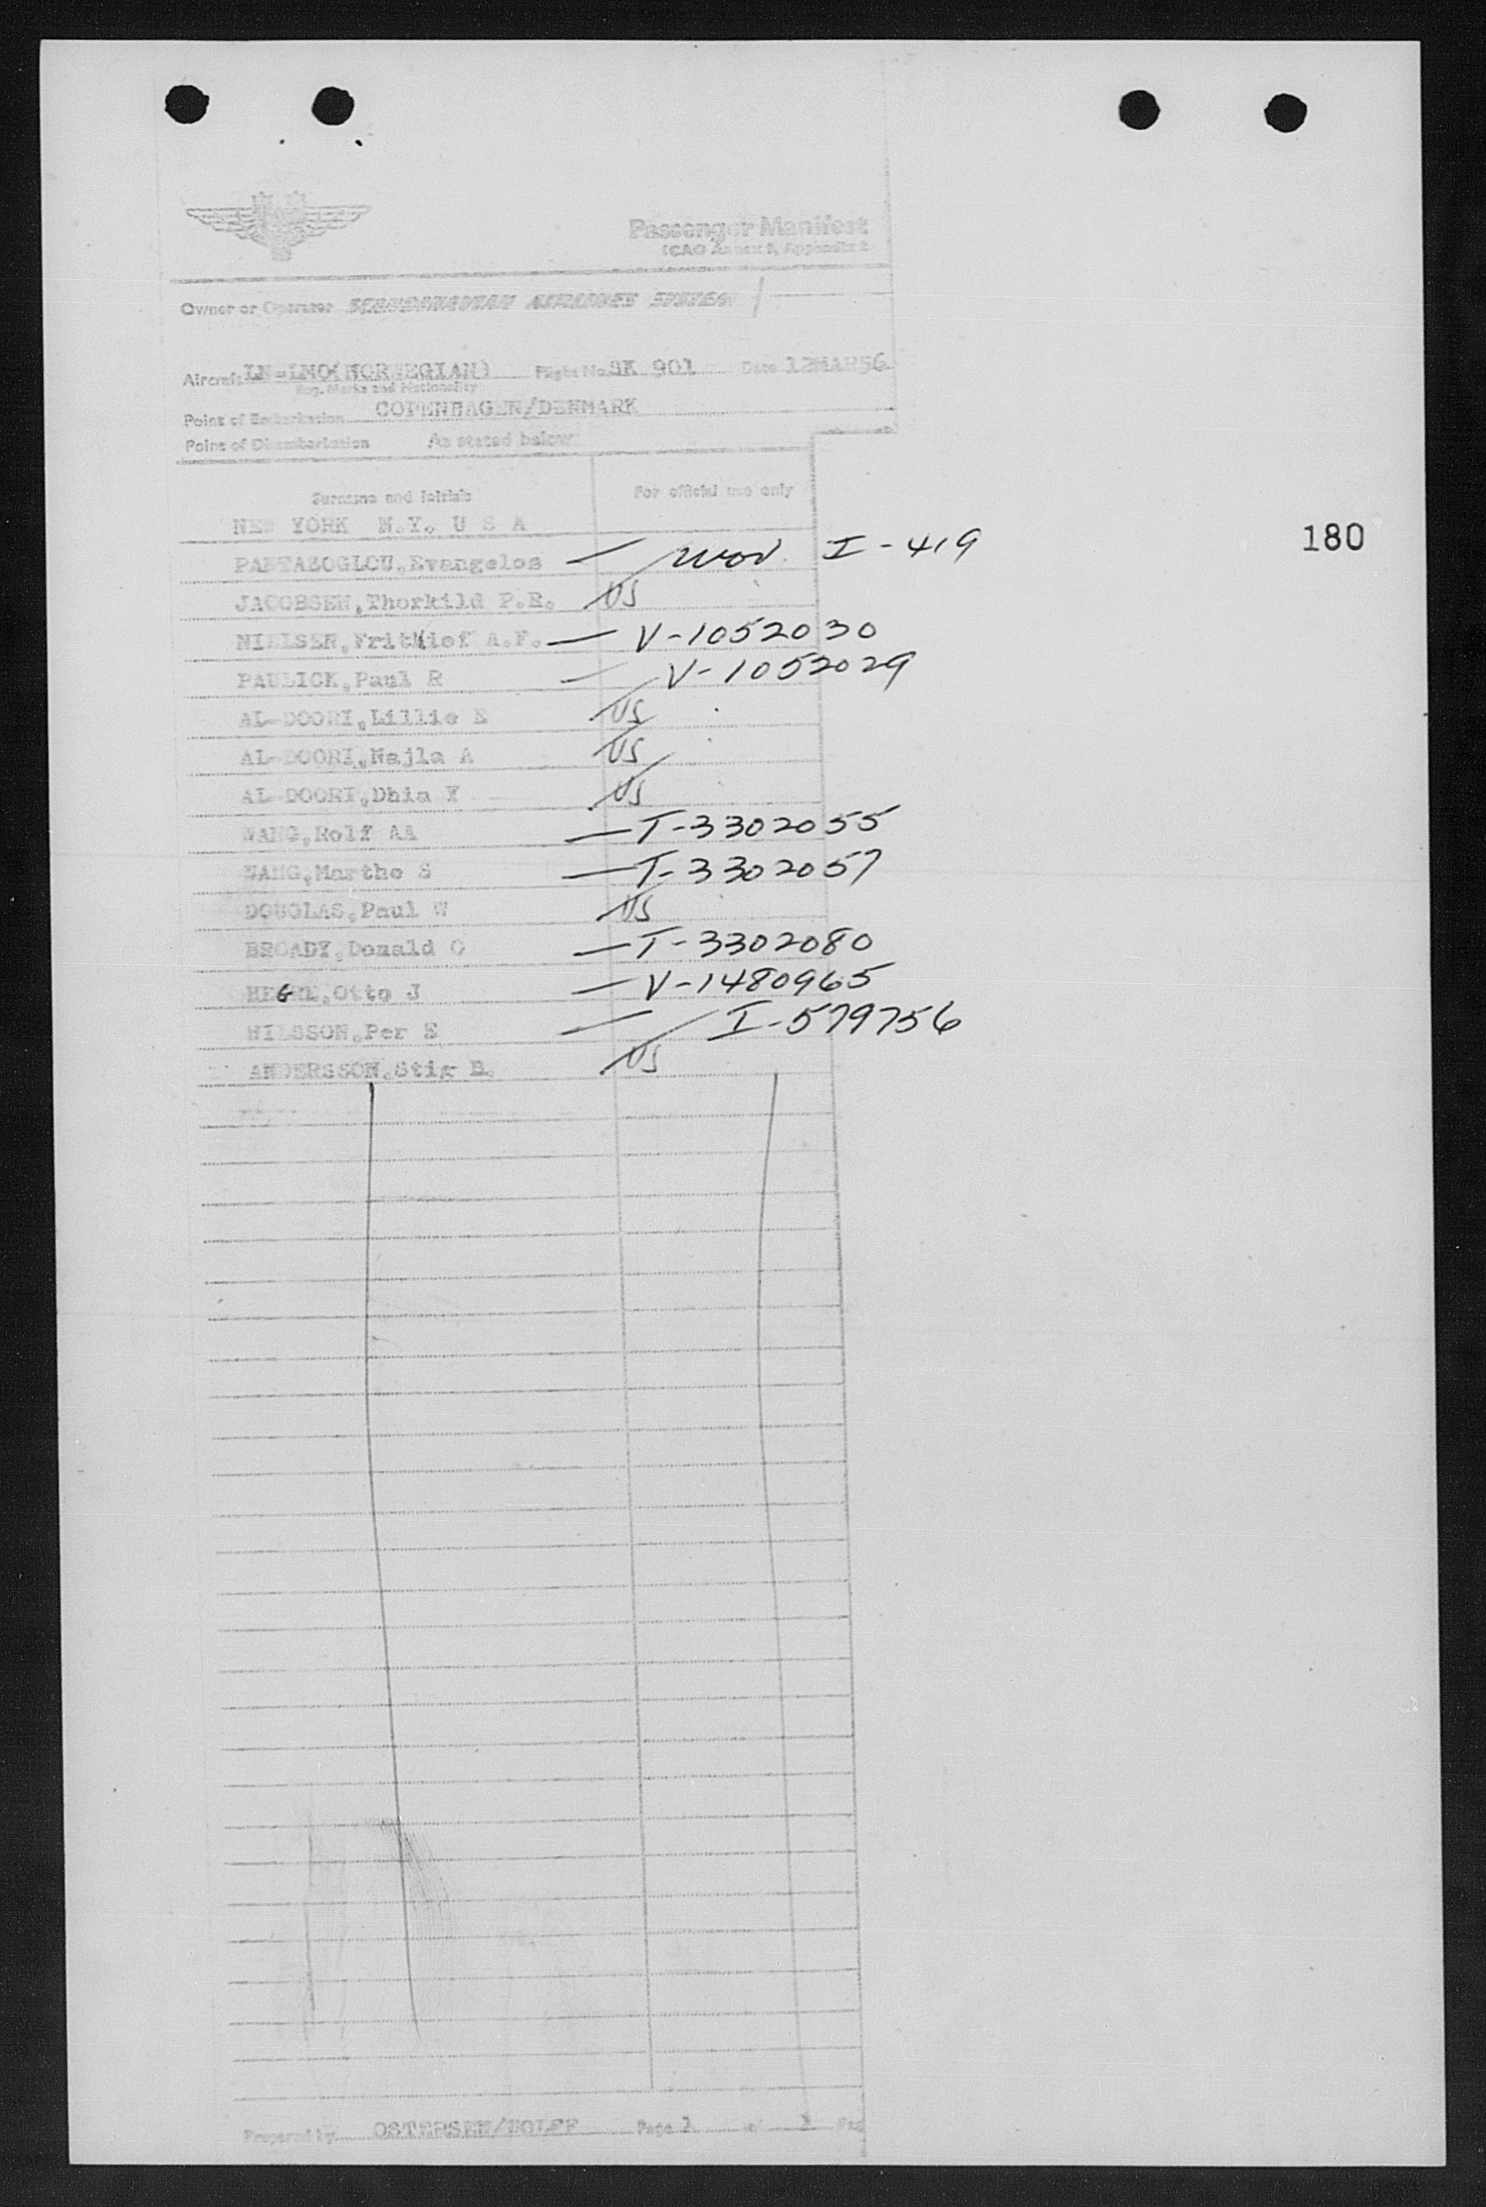 Passenger Manifest
ICAO Annex 9, Appendix 2
Owner or Operator SCANDINAVIAN AIRLINES SYSTEM
Aircraft LN-LMO(NORWEGIAN) Flight No. SK 901 Date 12MAR56
Reg. Marks and Nationality
Point of Embarkation COPENHAGEN/DENMARK
Point of Disembarkation As stated below
Surname and Initials For official use only
NEW YORK N.Y. U S A
180
PANTAZOGLOU,Evangelos — I-419
JACOBSEN,Thorkild P.E. US
NIELSEN,Frithiof A.F. — V-1052030
PAULICK,Paul R — V-1052029
AL-DOORI,Lillie E US
AL-DOORI,Najla A US
AL-DOORI,Dhia Y US
WANG,Rolf AA — T-3302055
WANG,Marthe S — T-3302057
DOUGLAS,Paul W US
BROADY,Donald O — T-3302080
Otto J — V-1480965
NILSSON,Per E — I-579756
ANDERSSON,Stig B. US
Prepared by OSTERSEN/WOLFF Page 1 of